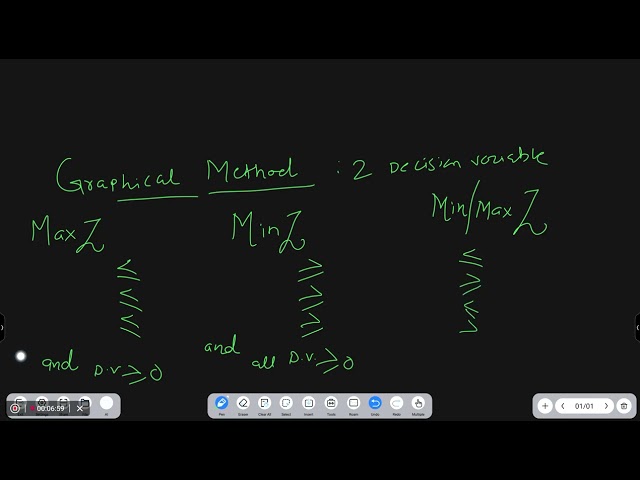 Graphical Method : 2 Decision variable
Max Z Min Z Min/Max Z
≤ ≥ ≤
≤ ≥ ≥
≤ ≥ ≤
>
and D.V ≥ 0 and all D.V. ≥ 0
00:06:59
AI
Pen Eraser Clear All Select Insert Tools Roam Undo Redo Multiple
01/01